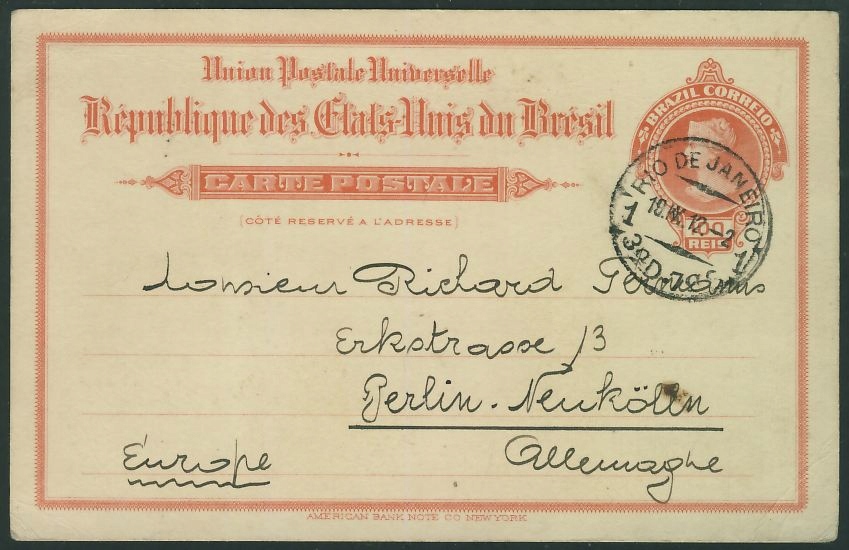 Union Postale Universelle
République des États-Unis du Brésil
BRAZIL CORREIO
CARTE POSTALE
100
REIS
(CÔTÉ RESERVÉ A L'ADRESSE)
RIO DE JANEIRO
1 1
Monsieur Richard
Erkstrasse 13
Berlin-Neukölln
Europe Allemagne
AMERICAN BANK NOTE CO NEW YORK